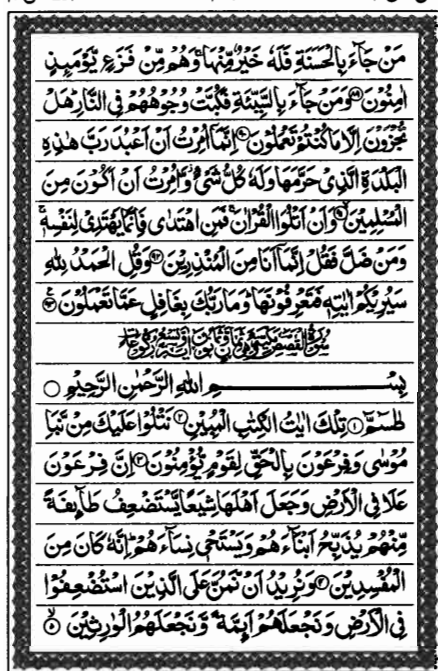 مَنْ جَآءَ بِالْحَسَنَةِ فَلَهٗ خَيْرٌ مِّنْهَا ۚ وَهُمْ مِّنْ فَزَعٍ يَّوْمَىِٕذٍ
اٰمِنُوْنَ ﴿۸۹﴾ وَمَنْ جَآءَ بِالسَّيِّئَةِ فَكُبَّتْ وُجُوْهُهُمْ فِى النَّارِ ؕ هَلْ
تُجْزَوْنَ اِلَّا مَا كُنْتُمْ تَعْمَلُوْنَ ﴿۹۰﴾ اِنَّمَاۤ اُمِرْتُ اَنْ اَعْبُدَ رَبَّ هٰذِهِ
الْبَلْدَةِ الَّذِىْ حَرَّمَهَا وَلَهٗ كُلُّ شَىْءٍ ؗ وَّاُمِرْتُ اَنْ اَكُوْنَ مِنَ
الْمُسْلِمِيْنَ ﴿۹۱﴾ وَاَنْ اَتْلُوَا الْقُرْاٰنَ ۚ فَمَنِ اهْتَدٰى فَاِنَّمَا يَهْتَدِىْ لِنَفْسِهٖ ۚ
وَمَنْ ضَلَّ فَقُلْ اِنَّمَاۤ اَنَا مِنَ الْمُنْذِرِيْنَ ﴿۹۲﴾ وَقُلِ الْحَمْدُ لِلّٰهِ
سَيُرِيْكُمْ اٰيٰتِهٖ فَتَعْرِفُوْنَهَا ؕ وَمَا رَبُّكَ بِغَافِلٍ عَمَّا تَعْمَلُوْنَ ﴿۹۳﴾
سُوْرَةُ الْقَصَصِ مَكِّيَّةٌ وَّهِىَ ثَمَانٌ وَّثَمَانُوْنَ اٰيَةً وَّتِسْعُ رُكُوْعَاتٍ
بِسْمِ اللّٰهِ الرَّحْمٰنِ الرَّحِيْمِ
طٰسٓمّٓ ﴿۱﴾ تِلْكَ اٰيٰتُ الْكِتٰبِ الْمُبِيْنِ ﴿۲﴾ نَتْلُوْا عَلَيْكَ مِنْ نَّبَاِ
مُوْسٰى وَفِرْعَوْنَ بِالْحَقِّ لِقَوْمٍ يُّؤْمِنُوْنَ ﴿۳﴾ اِنَّ فِرْعَوْنَ
عَلَا فِى الْاَرْضِ وَجَعَلَ اَهْلَهَا شِيَعًا يَّسْتَضْعِفُ طَآىِٕفَةً
مِّنْهُمْ يُذَبِّحُ اَبْنَآءَهُمْ وَيَسْتَحْىٖ نِسَآءَهُمْ ؕ اِنَّهٗ كَانَ مِنَ
الْمُفْسِدِيْنَ ﴿۴﴾ وَنُرِيْدُ اَنْ نَّمُنَّ عَلَى الَّذِيْنَ اسْتُضْعِفُوْا
فِى الْاَرْضِ وَنَجْعَلَهُمْ اَىِٕمَّةً وَّنَجْعَلَهُمُ الْوٰرِثِيْنَ ﴿۵﴾